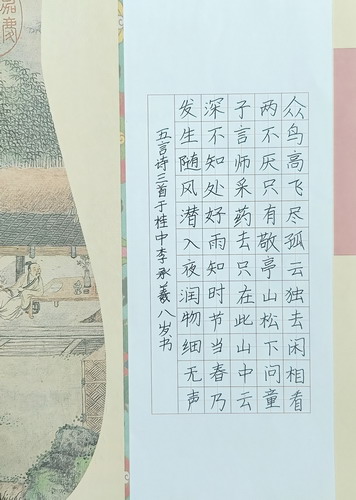 众鸟高飞尽孤云独去闲相看
两不厌只有敬亭山松下问童
子言师采药去只在此山中云
深不知处好雨知时节当春乃
发生随风潜入夜润物细无声
五言诗三首于桂中李承羲八岁书